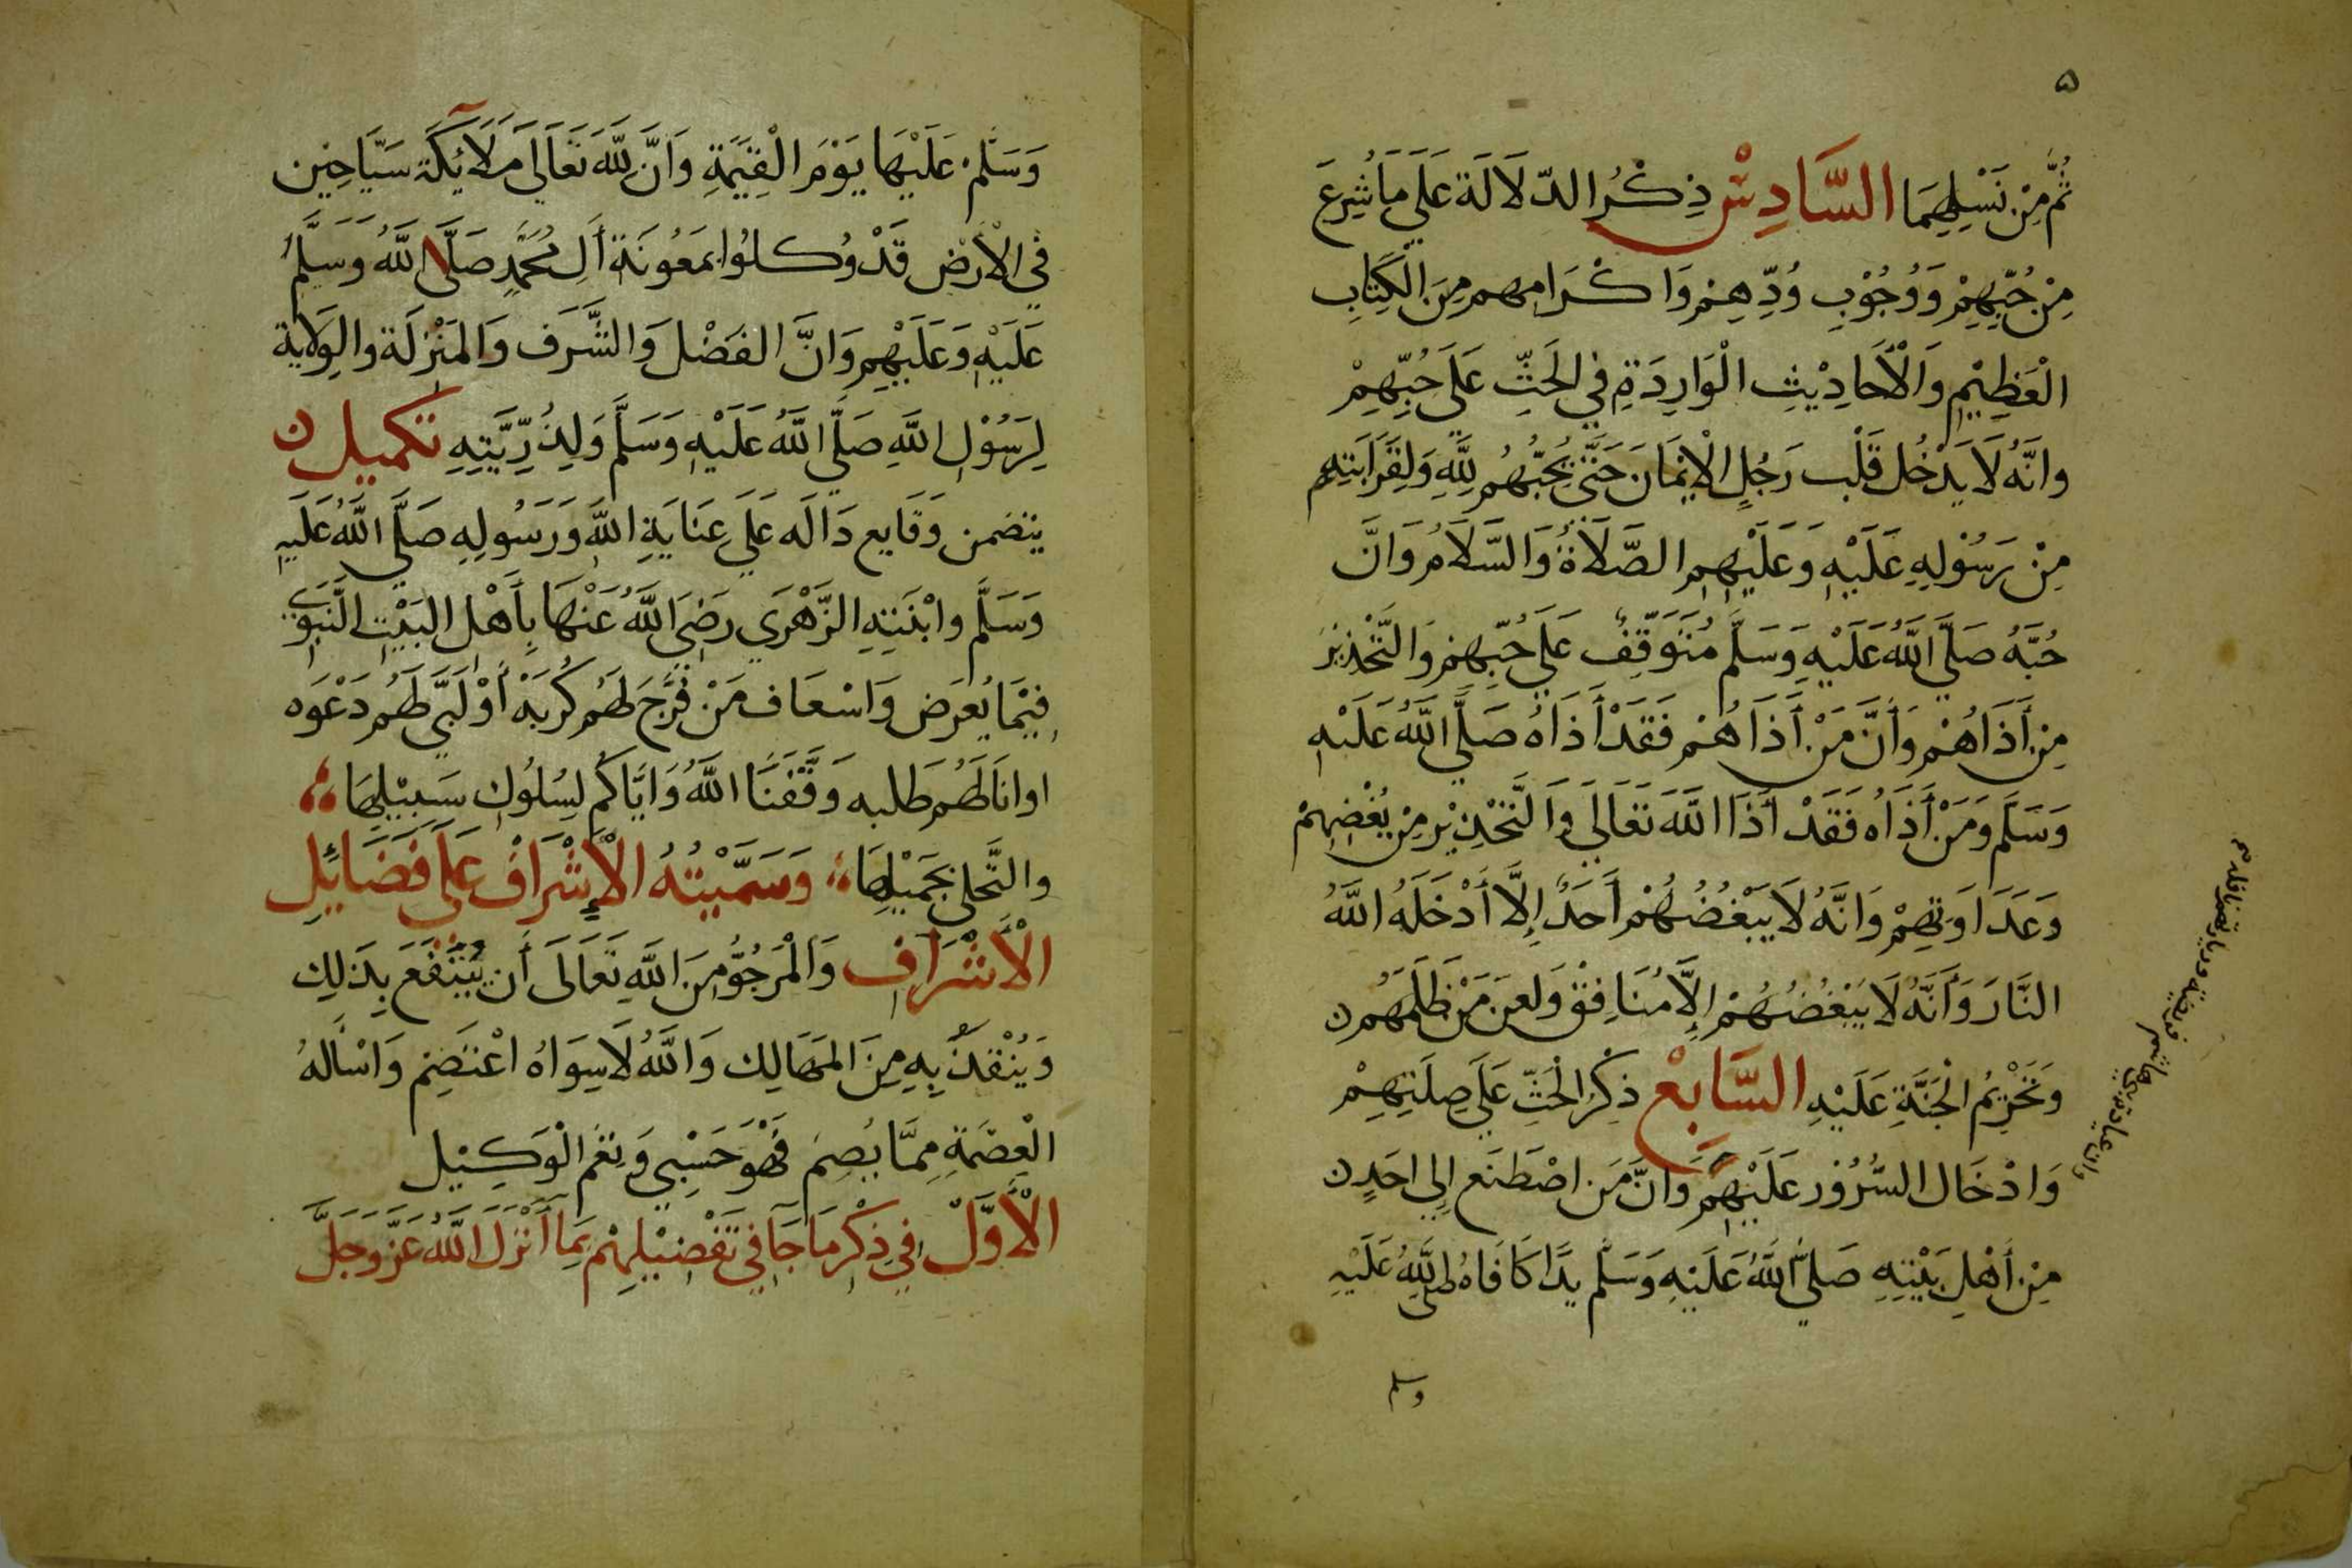 ٥
ثُمَّ مِنْ نَسْلِهِمَا السَّادِسْ ذِكْرُ الدّلَالَة عَلَى مَا شُرِعَ
مِنْ حُبِّهِمْ وَوُجُوْبِ وُدِّهِمْ وَاكْرَامِهم مِنَ الْكِتَابِ
الْعَظِيْمِ وَالْأَحَادِيْثِ الْوَارِدَةِ فِي الحَثِّ عَلَى حُبِّهِمْ
وانَّهُ لَا يَدْخُل قَلْب رَجُلٍ الْإِيْمَانَ حَتَّى يُحِبُّهُم لِلَّهِ وَلِقَرَابَتِهِم
مِنْ رَسُوْلِهِ عَلَيْهِ وَعَلَيْهِم الصَّلَاةُ وَالسَّلَامُ وَانَّ
حُبَّهُ صَلَّى اللَّهُ عَلَيْهِ وَسَلَّمَ مُتَوَقِّفٌ عَلَى حُبِّهِمْ وَالتَّحْذِيْرَ
مِنْ أَذَاهُمْ وَأَنَّ مَنْ أَذَاهُمْ فَقَدْ أَذَاهُ صَلَّى اللَّهُ عَلَيْهِ
وَسَلَّمَ وَمَنْ أَذَاهُ فَقَدْ أَذَا اللَّهَ تَعَالَى وَالتَّحْذِيْر مِنْ بُغْضِهِمْ
وَعَدَاوَتِهِمْ وَانَّهُ لَا يَبْغُضُهُمْ أَحَدٌ إِلَّا أَدْخَلَهُ اللَّهُ
النَّارَ وَأَنَّهُ لَا يَبْغُضُهُمْ إِلَّا مُنَافِقْ وَلعِنَ مَنْ ظَلَمَهُم
وَتَحْرِيْمُ الْجَنَّةِ عَلَيْهِ السَّابِعْ ذِكْرُ الْحَثِّ عَلَى صِلَتِهِمْ
وَادْخَال السُّرُوْر عَلَيْهِمْ وَانَّ مَن اصْطَنَع إِلى احَدٍ
مِنْ أَهْلِ بَيْتِهِ صَلَّى اللَّهُ عَلَيْهِ وَسَلَّم يَدًا كَافَاهُ صَلَّى اللَّهُ عَلَيْهِ
وسلم
وَسَلَّمْ عَلَيْهَا يَوْمَ الْقِيَمَةِ وَانَّ لِلَّهِ تَعَالَى مَلَائِكَة سَيَّاحِيْن
فِي الْأَرْض قَدْ وُكلُوا بمَعُونَة أَل مُحَمَّدٍ صَلَّى اللَّهُ وَسَلَّمَ
عَلَيْهِ وَعَلَيْهِم وَانَّ الفَضْل وَالشَّرَف وَالمَنْزِلَة والوِلَاية
لِرَسُوْلِ اللَّهِ صَلَّى اللَّهُ عَلَيْهِ وَسَلَّمَ وَلِذُرِّيَّتِهِ تَكْمِيل
يتضمن وَقَايع دَالَه عَلَى عَنَايَةِ اللَّه وَرَسُولِهِ صَلَّى اللَّهُ عَلَيْهِ
وَسَلَّم وابْنَتِهِ الزَّهْرَى رَضِيَ اللَّهُ عَنْهَا بِأَهْل البَيْتِ النَّبَوِي
فِيْمَا يُعرَض وَاسْعَاف مَنْ فَرَّجَ لَهُم كُرْبَةْ أَوْ لَبَّى لَهُم دَعْوَه
اوانَا لَهُم طَلبه وَفَّقَنَا اللَّهُ وَايَّاكُم لِسُلُوك سَبِيْلِهَا
والتَّحلى بجَمِيْلِهَا وَسَمَّيْتُهُ الْإِشْرَافْ عَلَى فَضَائِلِ
الْأَشْرَافِ وَالْمَرجُوُّ مِنَ اللَّهِ تَعَالَى أَن يُنْتَفَعَ بِذَلِكَ
وَيُنْقَذَ بِهِ مِنَ المَهَالِك وَاللَّهُ لَا سِوَاهُ اعْتَصِم وَاسْأَلهُ
الْعِصْمَةِ مِمَّا يُصِمَ فَهْوَ حَسْبِي وَنِعْم الْوَكِيْل
الْأَوَّلْ فِي ذِكْرِ مَا جَآ فِي تَفْضِيْلِهِمْ بِمَا أَنْزَلَ اللَّهُ عَزَّ وَجَلَّ